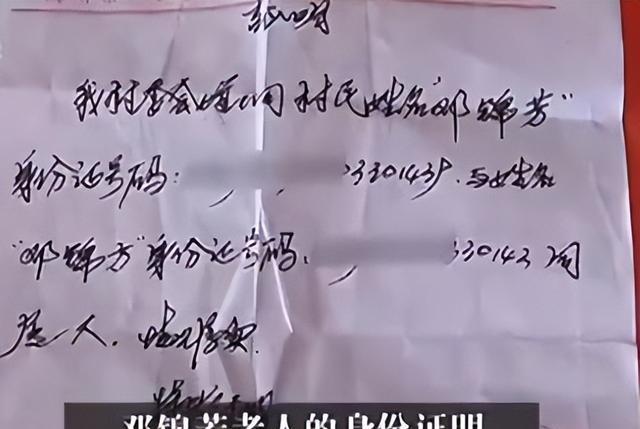 证明
我村委会证明村民姓名"邓锦芳"
身份证号码: 3301438.与姓名
"邓锦方"身份证号码: 330143 同
是一人. 情况属实.
特此证明
邓锦芳老人的身份证明